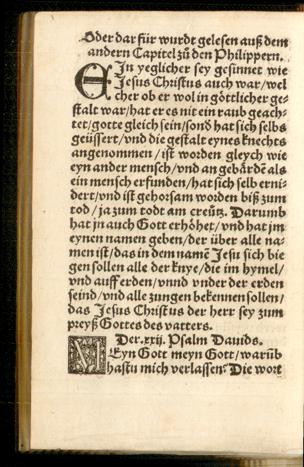 Oder dar für wurdt gelesen auß dem
andern Capitel zů den Philippern.
EIn yeglicher sey gesinnet wie
Jesus Christus auch war/wel
cher ob er wol in göttlicher ge-
stalt war/hat er es nit ein raub geach-
tet/gotte gleich sein/sonđ hat sich selbs
geüssert/vnd die gestalt eynes knechts
angenommen/ist worden gleych wie
eyn ander mensch/vnd an gebärdē als
ein mensch erfunden/hat sich selb erni-
dert/vnd ist gehorsam worden biß zum
tod/ja zum todt am creütz. Darumb
hat jn auch Gott erhöhet/vnd hat jm
eynen namen geben/der über alle na-
men ist/das in dem namē Jesu sich bie
gen sollen alle der knye/die im hymel/
vnd auff erden/vnnd vnder der erden
seind/vnd alle zungen bekennen sollen/
das Jesus Christus der herr sey zum
preyß Gottes des vatters.
Der .xxij. Psalm Dauids.
MEyn Gott meyn Gott/warūb
hastu mich verlassen? Die wort